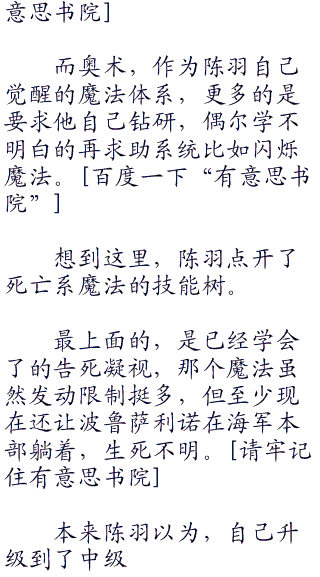 意思书院]
而奥术，作为陈羽自己
觉醒的魔法体系，更多的是
要求他自己钻研，偶尔学不
明白的再求助系统比如闪烁
魔法。[百度一下“有意思书
院”]
想到这里，陈羽点开了
死亡系魔法的技能树。
最上面的，是已经学会
了的告死凝视，那个魔法虽
然发动限制挺多，但至少现
在还让波鲁萨利诺在海军本
部躺着，生死不明。[请牢记
住有意思书院]
本来陈羽以为，自己升
级到了中级